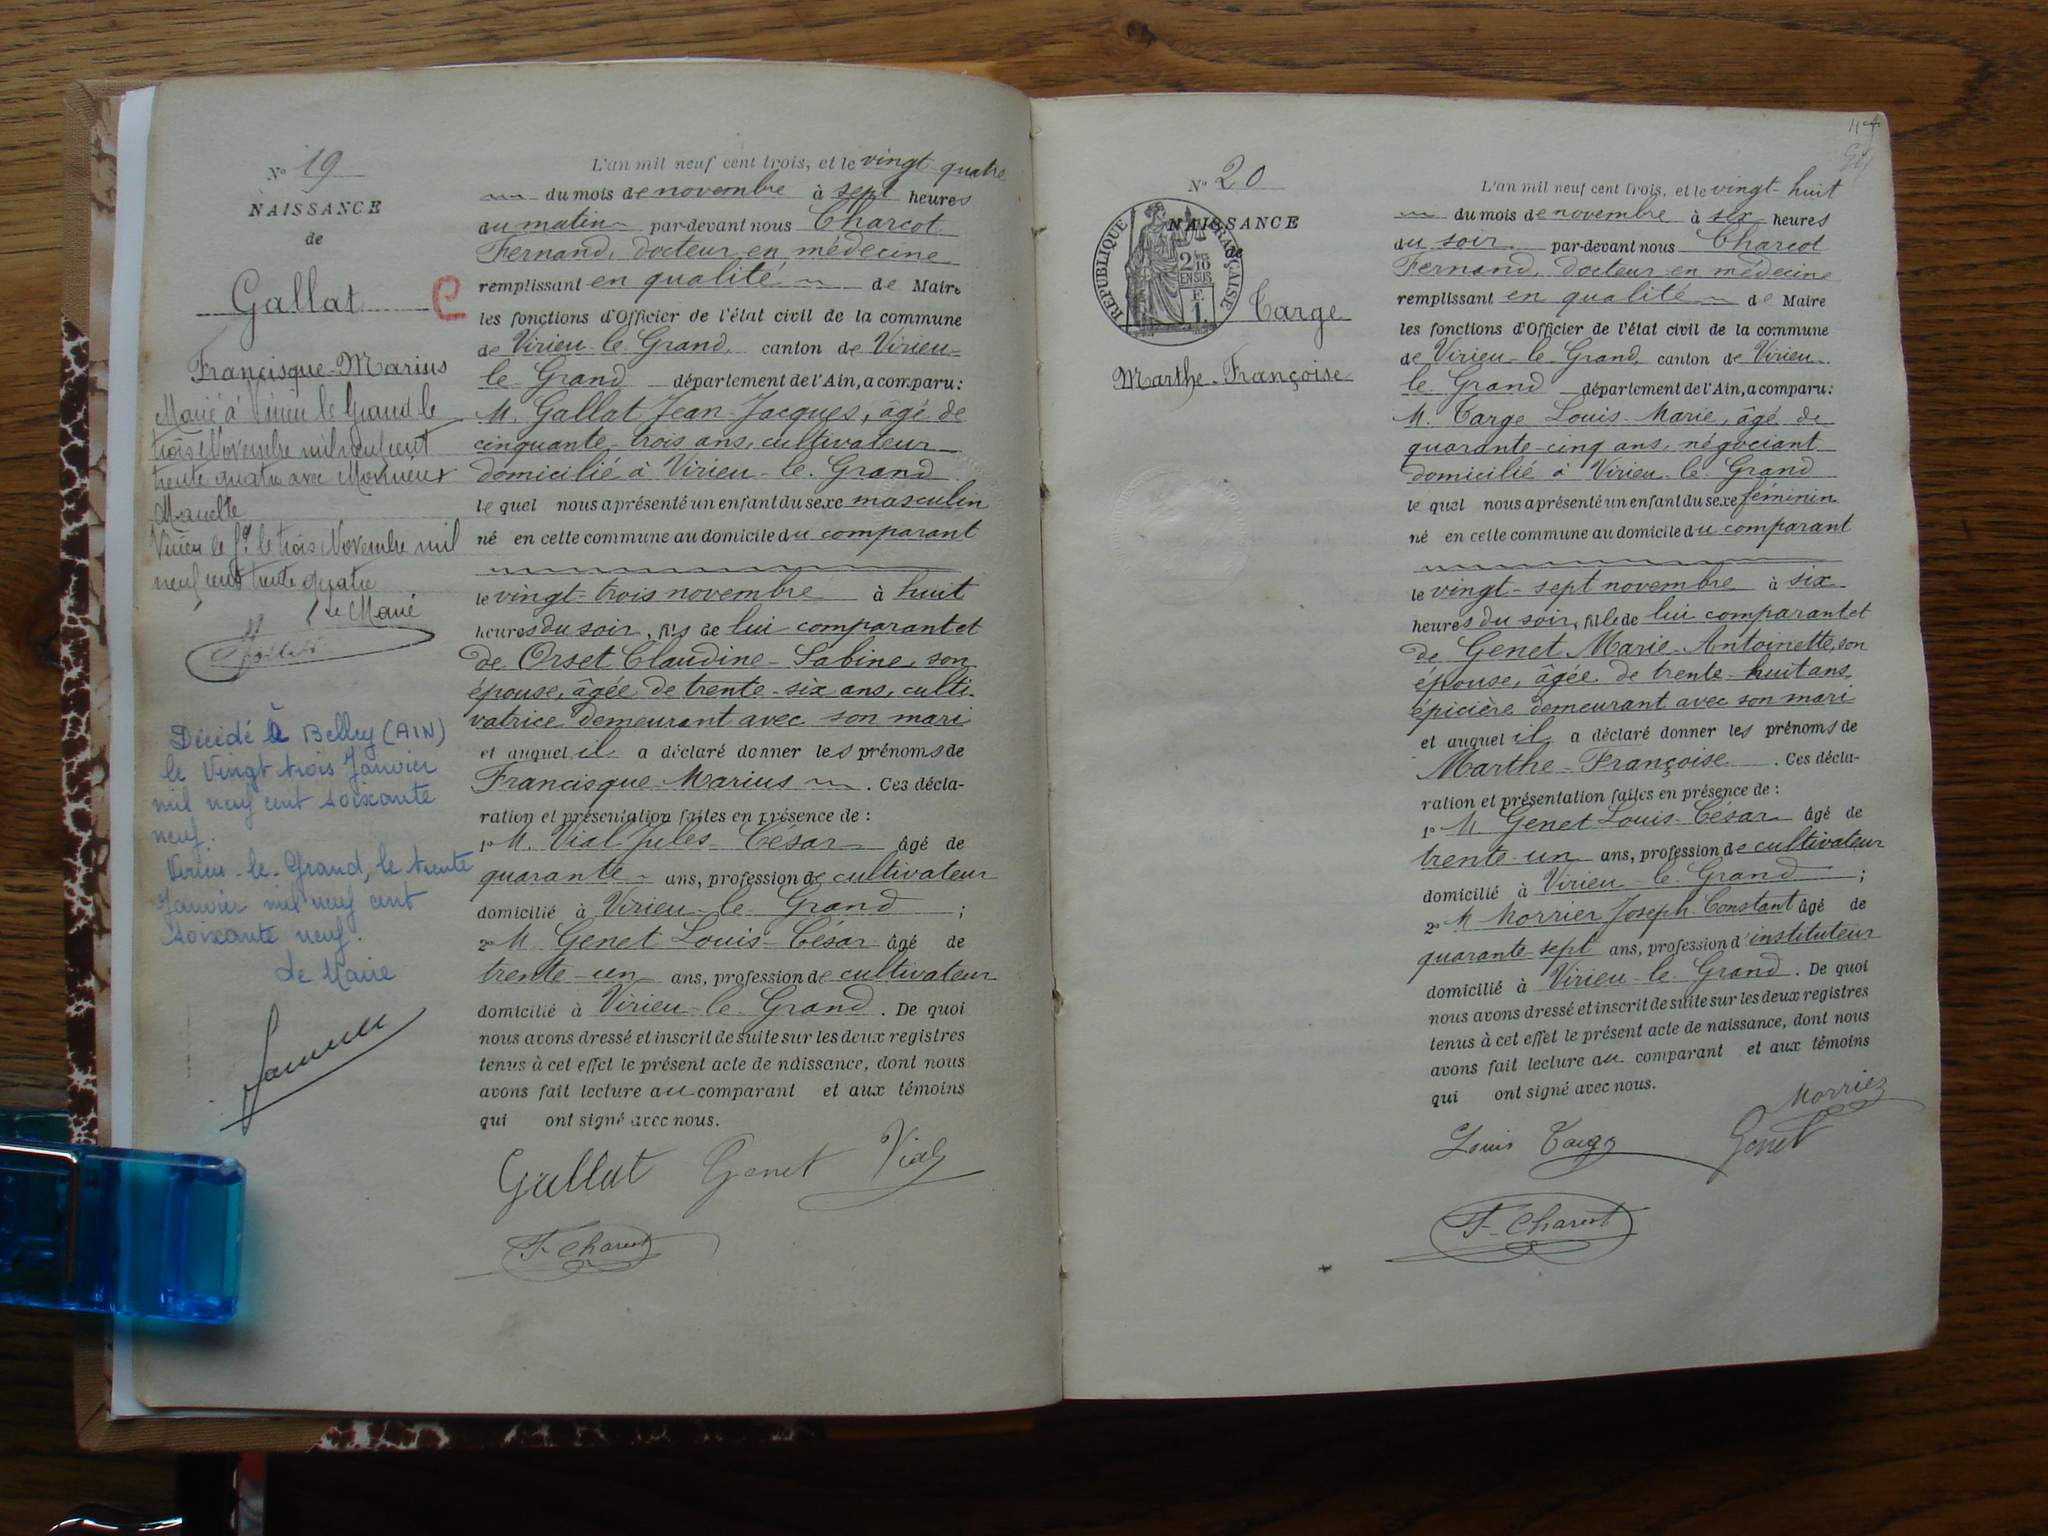 N° 19
NAISSANCE
de
Gallat
Francisque-Marius
Marié à Virieu le Grand le
trois Novembre mil neuf cent
trente quatre avec Monnieux
Virieu le Gd le trois Novembre mil
neuf cent trente quatre
Le Maire
Décidé à Belley (AIN)
le Vingt trois Janvier
mil neuf cent soixante
neuf.
Virieu-le-Grand, le trente
Janvier mil neuf cent
soixante neuf.
Le Maire
L'an mil neuf cent trois, et le vingt-quatre
du mois de novembre à sept heures
du matin par-devant nous Charcot
Fernand, docteur en médecine
remplissant en qualité de Maire
les fonctions d'Officier de l'état civil de la commune
de Virieu-le-Grand, canton de Virieu-
le-Grand département de l'Ain, a comparu:
M. Gallat Jean-Jacques, âgé de
cinquante-trois ans, cultivateur
domicilié à Virieu-le-Grand
le quel nous a présenté un enfant du sexe masculin
né en cette commune au domicile du comparant
le vingt-trois novembre à huit
heures du soir, fils de lui comparant et
de Orset Claudine-Sabine, son
épouse, âgée de trente-six ans, culti-
vatrice demeurant avec son mari
et auquel il a déclaré donner les prénoms de
Francisque-Marius. Ces décla-
ration et présentation faites en présence de :
1° M. Vial Jules-César âgé de
quarante ans, profession de cultivateur
domicilié à Virieu-le-Grand ;
2° M. Genet Louis-César âgé de
trente-un ans, profession de cultivateur
domicilié à Virieu-le-Grand. De quoi
nous avons dressé et inscrit de suite sur les deux registres
tenus à cet effet le présent acte de naissance, dont nous
avons fait lecture au comparant et aux témoins
qui ont signé avec nous.
Gallat Genet Vial
F. Charcot
N° 20
NAISSANCE
de
RÉPUBLIQUE FRANÇAISE
2/10
EN SUS
F.
1.
Targe
Marthe-Françoise
L'an mil neuf cent trois, et le vingt-huit
du mois de novembre à six heures
du soir par-devant nous Charcot
Fernand, docteur en médecine
remplissant en qualité de Maire
les fonctions d'Officier de l'état civil de la commune
de Virieu-le-Grand, canton de Virieu-
le-Grand département de l'Ain, a comparu:
M. Targe Louis-Marie, âgé de
quarante-cinq ans, négociant
domicilié à Virieu-le-Grand
le quel nous a présenté un enfant du sexe féminin
né en cette commune au domicile du comparant
le vingt-sept novembre à six
heures du soir, fille de lui comparant et
de Genet Marie-Antoinette, son
épouse, âgée de trente-huit ans,
épicière demeurant avec son mari
et auquel il a déclaré donner les prénoms de
Marthe-Françoise. Ces décla-
ration et présentation faites en présence de :
1° M. Genet Louis-César âgé de
trente-un ans, profession de cultivateur
domicilié à Virieu-le-Grand ;
2° M Morrier Joseph-Constant âgé de
quarante-sept ans, profession d'instituteur
domicilié à Virieu-le-Grand. De quoi
nous avons dressé et inscrit de suite sur les deux registres
tenus à cet effet le présent acte de naissance, dont nous
avons fait lecture au comparant et aux témoins
qui ont signé avec nous.
Morrier
Louis Targe Genet
F. Charcot